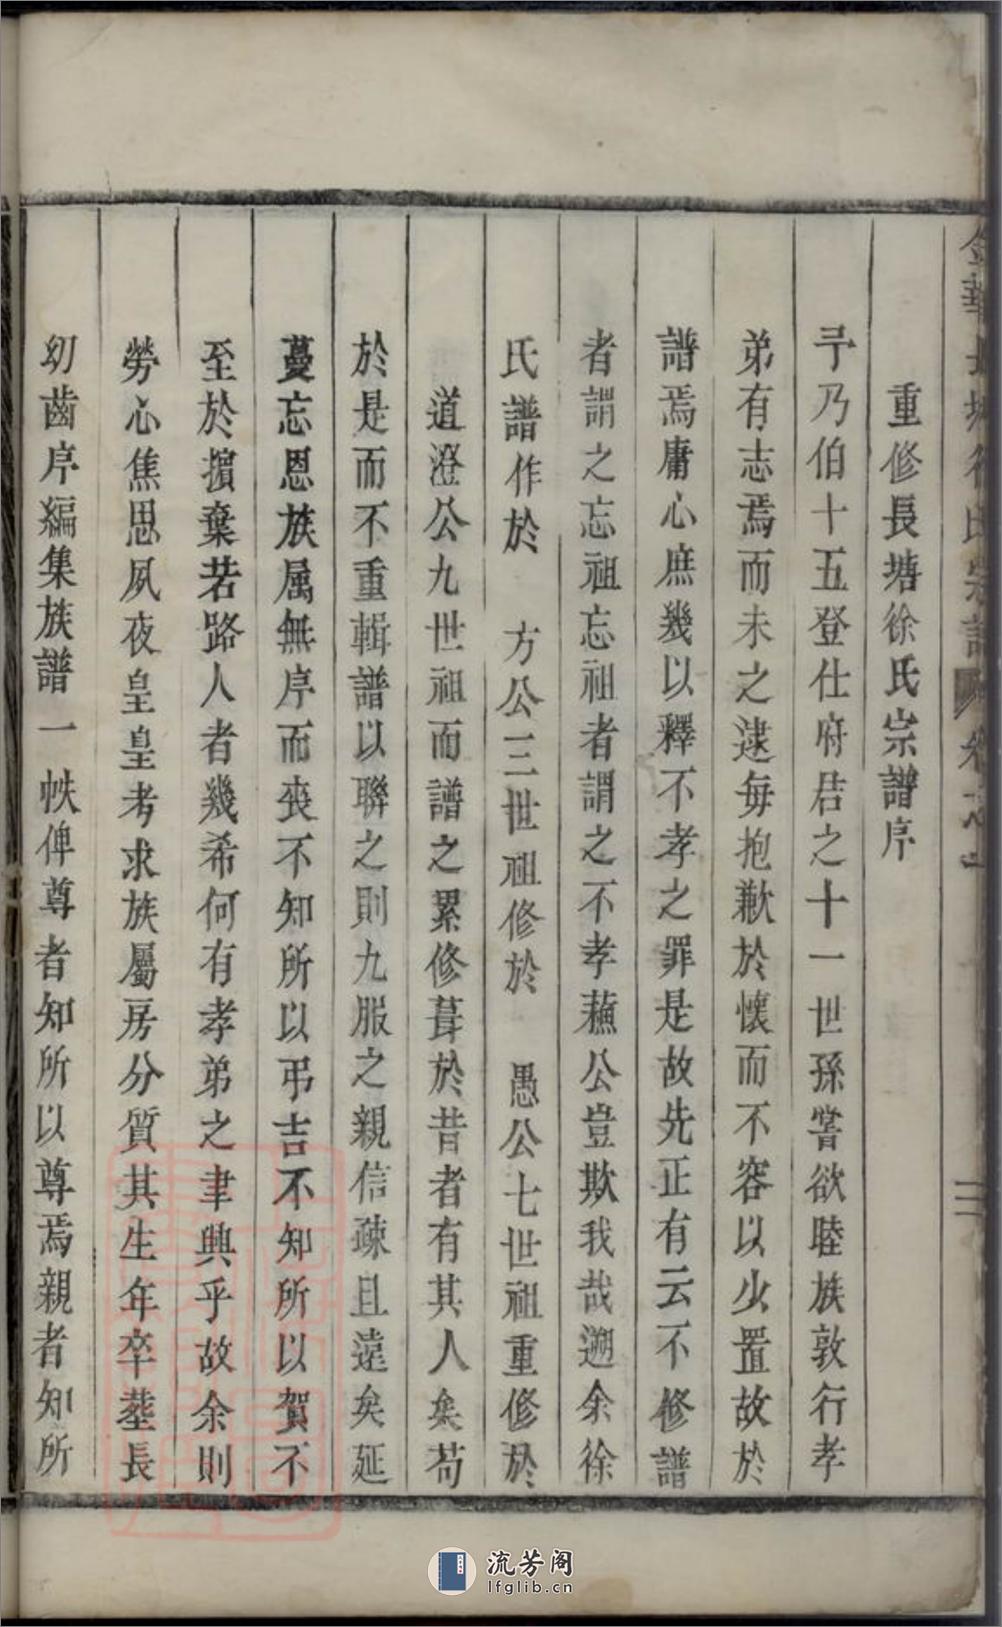 重修長塘徐氏宗譜序
予乃伯十五登仕府君之十一世孫嘗欲睦族敦行孝
弟有志焉而未之逮每抱歉於懷而不容以少置故於
譜焉庸心庶幾以釋不孝之罪是故先正有云不修譜
者謂之忘祖忘祖者謂之不孝蘓公豈欺我哉遡余徐
氏譜作於 方公三世祖修於 愚公七世祖重修於
道澄公九世祖而譜之累修葺於昔者有其人矣苟
於是而不重輯譜以聯之則九服之親信疎且遠矣延
蔓忘恩族属無序而喪不知所以弔吉不知所以賀不
至於擯棄若路人者幾希何有孝弟之聿興乎故余則
勞心焦思夙夜皇皇考求族屬房分質其生年卒塟長
幼齒序編集族譜一帙俾尊者知所以尊焉親者知所
金華長塘徐氏宗譜 卷之一 三
流芳阁
lfglib.cn